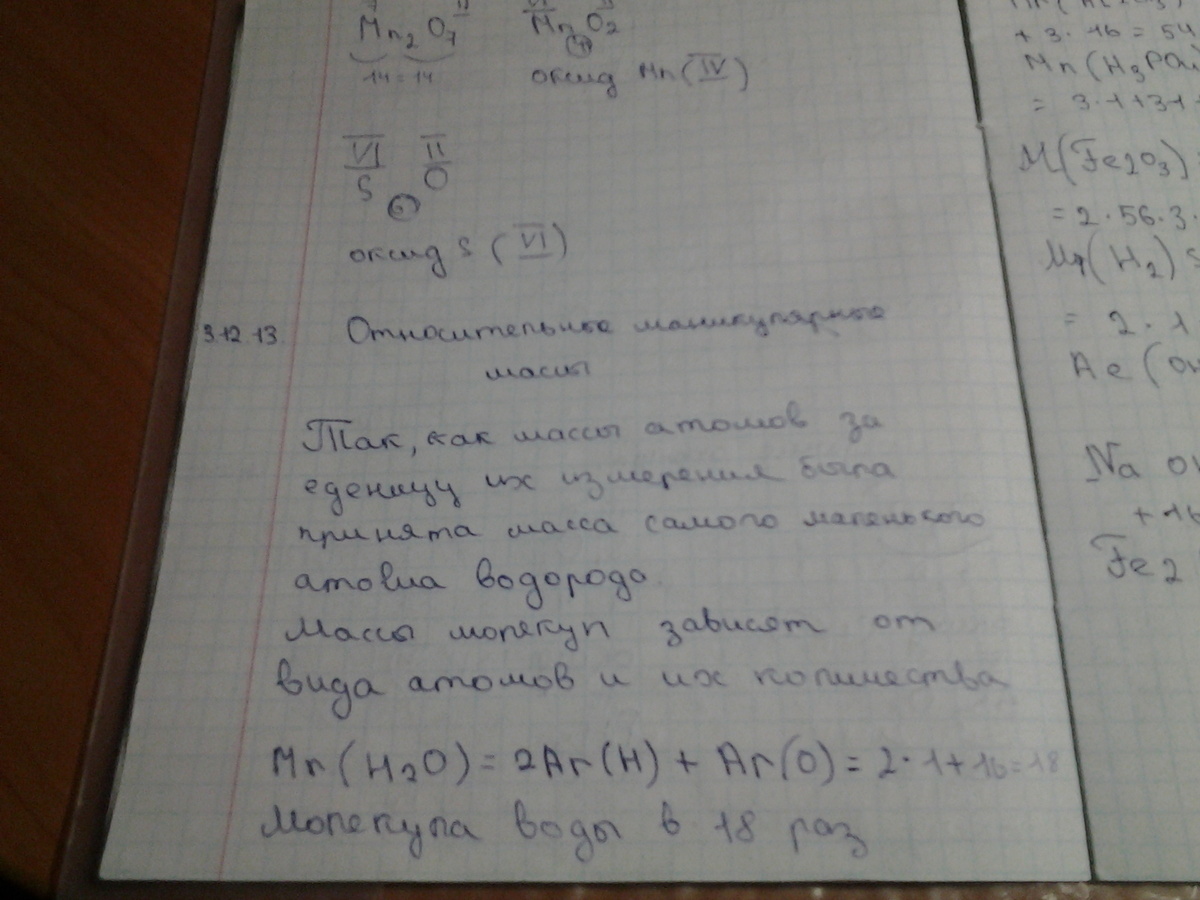 Mn₂O₇ VI Mn O₂
14=14 4
оксид Mn (IV)
VI II
S O
6
оксид S (VI)
3.12.13. Относительные маликулярные
массы
Так, как массы атомов за
еденицу их измерения была
принята масса самого маленького
атома водорода.
Массы молекул зависят от
вида атомов и их количества
Mr (H₂O) = 2Ar(H) + Ar(O) = 2·1+16=18
Молекула воды в 18 раз
+ 3·16 = 54
Mr (H₃PO₄
= 3·1+31+
M(Fe₂O₃)
=2·56·3·
Mr( H₂)
= 2·1
Ae (OH
Na OH
+16
Fe2